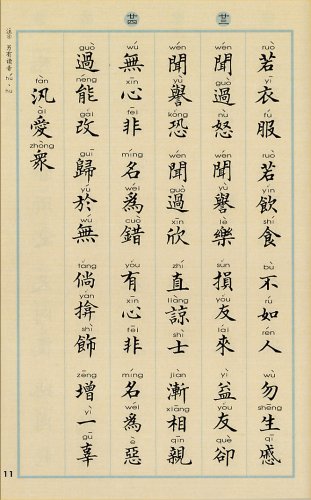 ruò yī fú ruò yǐn shí bù rú rén wù shēng qī
若衣服 若飲食 不如人 勿生慼
廿三
wén guò nù wén yù lè sǔn yǒu lái yì yǒu què
聞過怒 聞譽樂 損友來 益友卻
wén yù kǒng wén guò xīn zhí liàng shì jiàn xiāng qīn
聞譽恐 聞過欣 直諒士 漸相親
廿四
wú xīn fēi míng wéi cuò yǒu xīn fēi míng wéi è
無心非 名爲錯 有心非 名爲惡
guò néng gǎi guī yú wú tǎng yǎn shì zēng yì gū
過能改 歸於無 倘揜飾 增一辜
fàn ài zhòng
汎愛眾
11